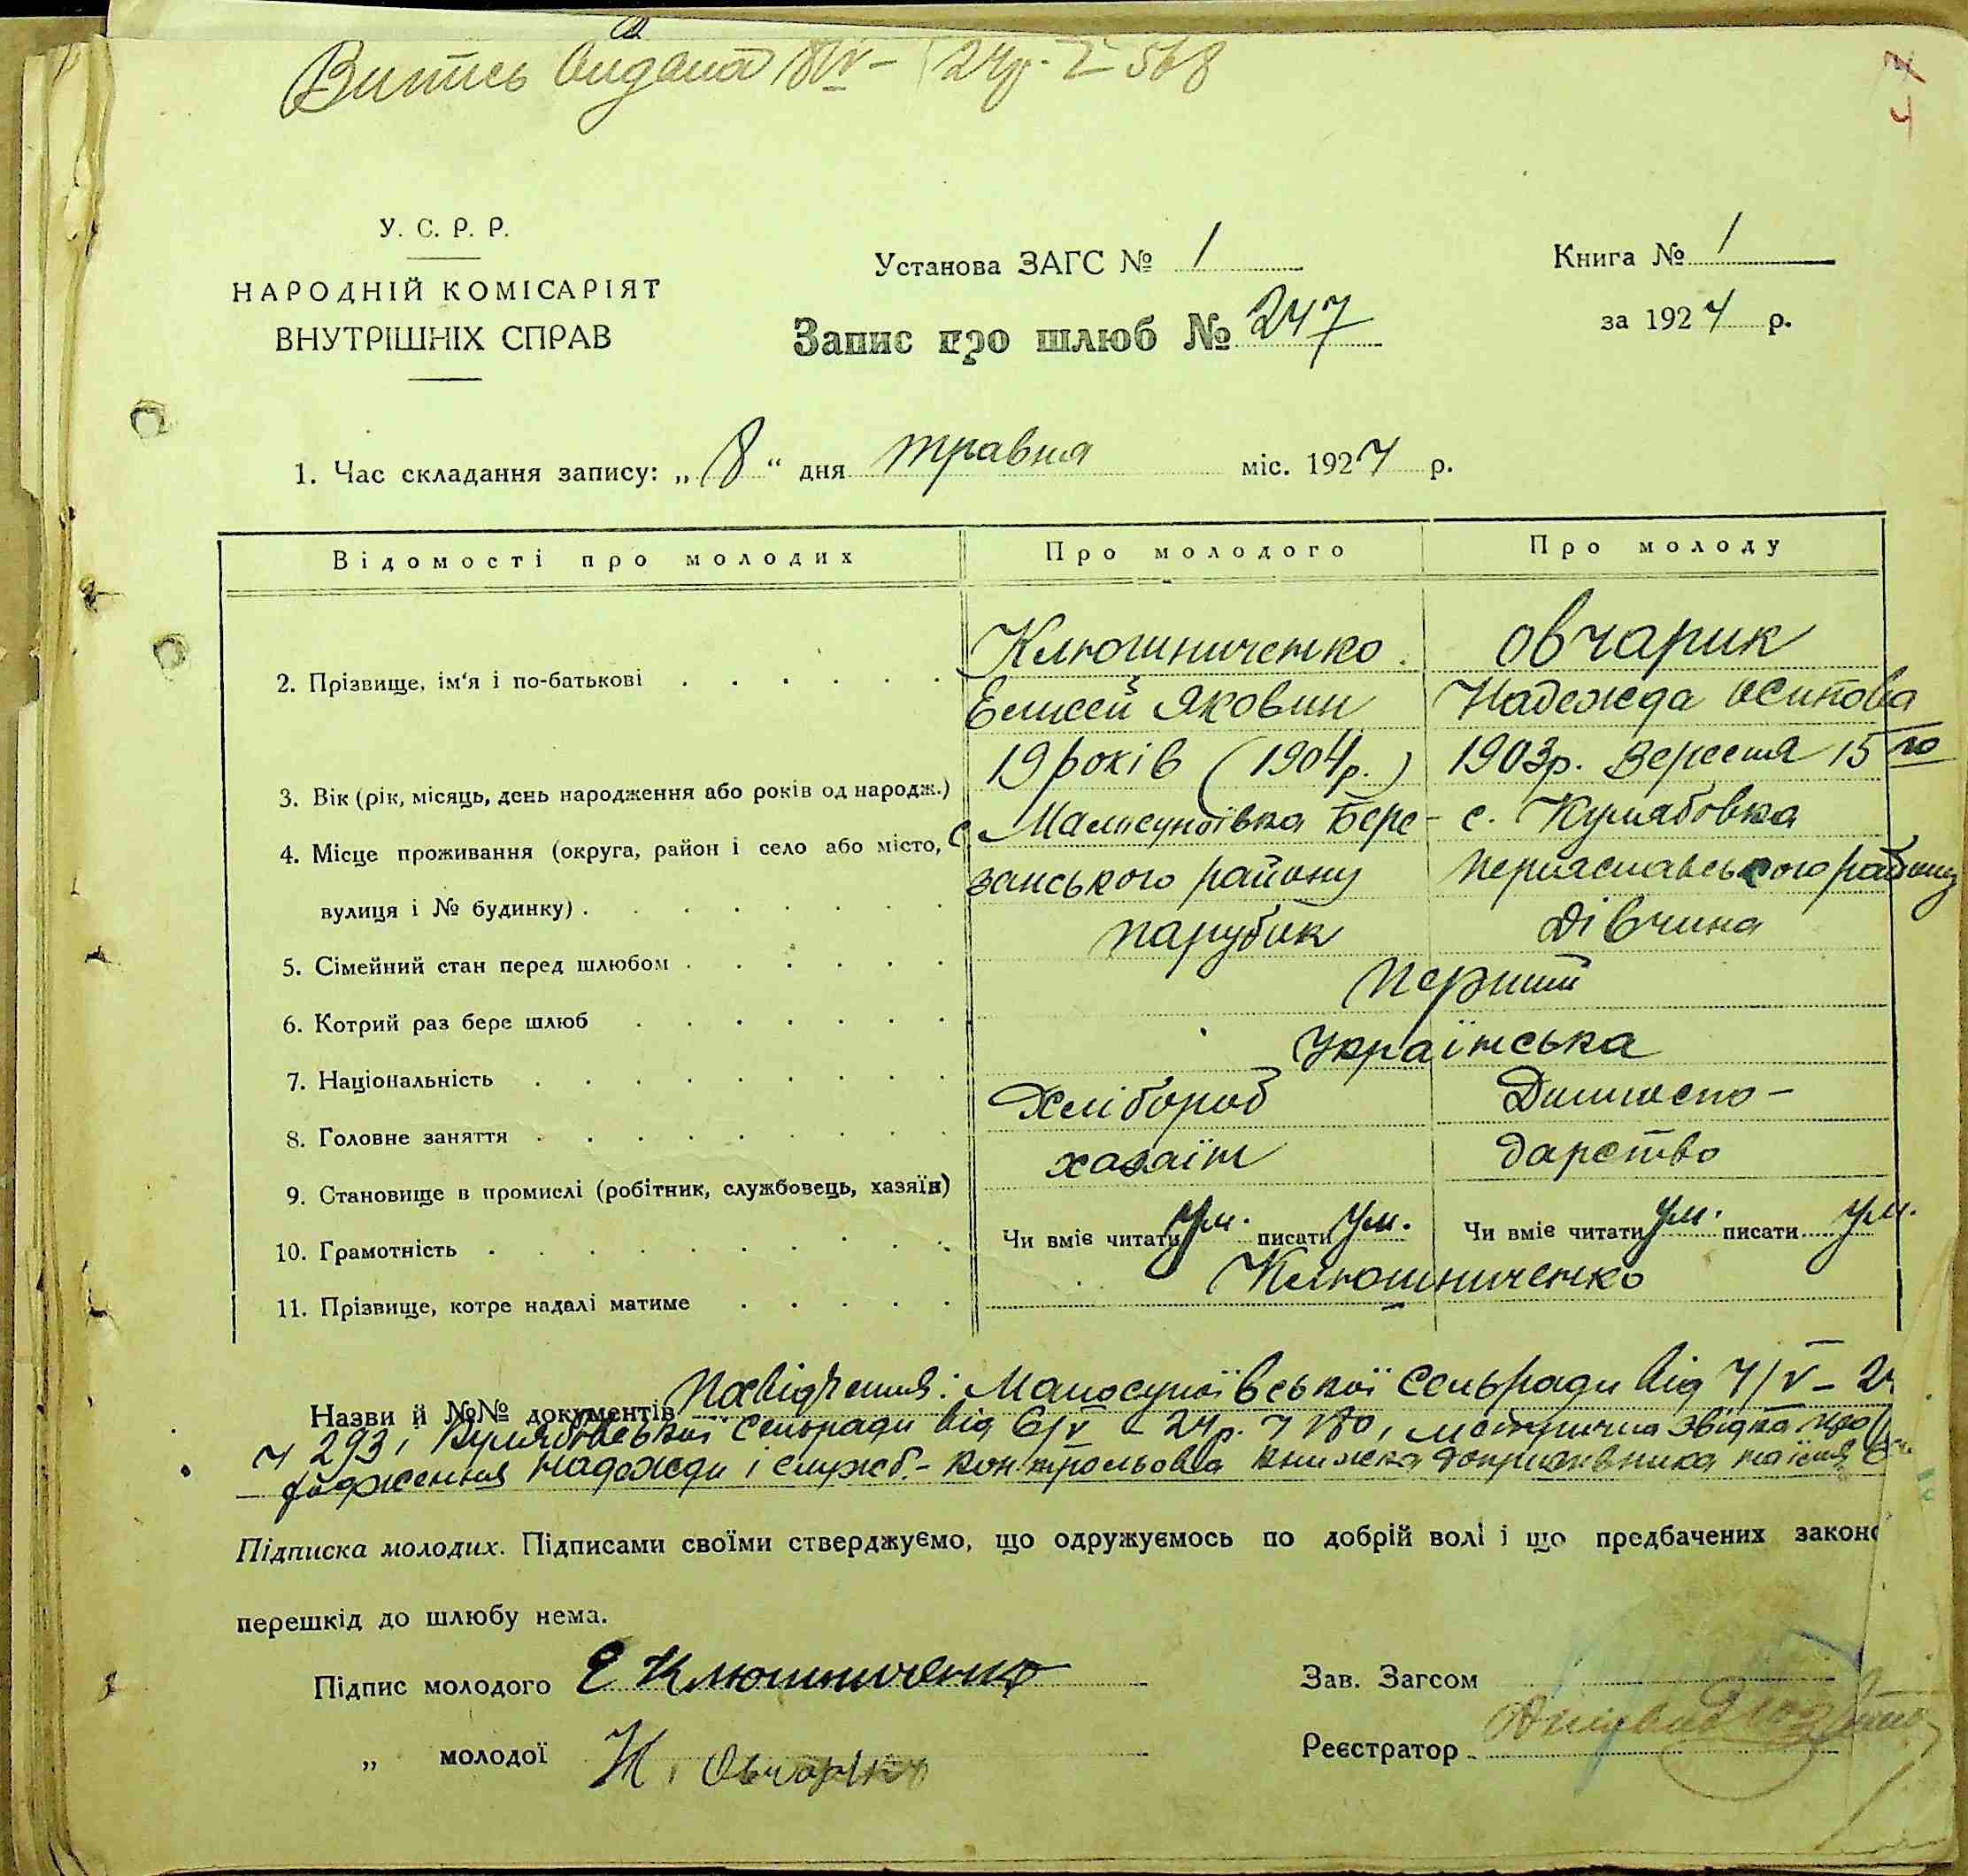 Витись видана 8/V – 24р. 568
У. С. Р. Р.
НАРОДНІЙ КОМІСАРІЯТ
ВНУТРІШНІХ СПРАВ
Установа ЗАГС № 1
Запис про шлюб № 247
Книга № 1
за 1924 р.
1. Час складання запису: „ 8 “ дня травня міс. 1924 р.
Відомості про молодих
Про молодого
Про молоду
2. Прізвище, ім'я і по-батькові
Клюшниченко
Елисей Яковин
Овчарик
Надежда Осипова
3. Вік (рік, місяць, день народження або років од народж.)
19 років (1904р.)
1903р. Вересня 15го
4. Місце проживання (округа, район і село або місто,
вулиця і № будинку)
с. Малосупоївка Бере-
занського району
с. Кулябовка
Переяславського району
5. Сімейний стан перед шлюбом
парубик
Дівчина
6. Котрий раз бере шлюб
Перший
7. Національність
Українська
8. Головне заняття
Хлібороб
Домогоспо-
9. Становище в промислі (робітник, службовець, хазяїн)
хазаїн
дарство
10. Грамотність
Чи вміє читати ум. писати ум.
Чи вміє читати ум. писати ум.
11. Прізвище, котре надалі матиме
Клюшниченко
Назви й №№ документів Посвідчення: Малосупоївської Сельради від 7/V – 2
ч 293, Кулябовської Сельради від 6/V – 24р. ч 180, метрична звідка про
родження Надежди і служб.- контрольова книжка допризивника на імя
Підписка молодих. Підписами своїми стверджуємо, що одружуємось по добрій волі і що предбачених законо
перешкід до шлюбу нема.
Підпис молодого Е Клюшниченко
Зав. Загсом
„ молодої Н. Овчарик
Реєстратор